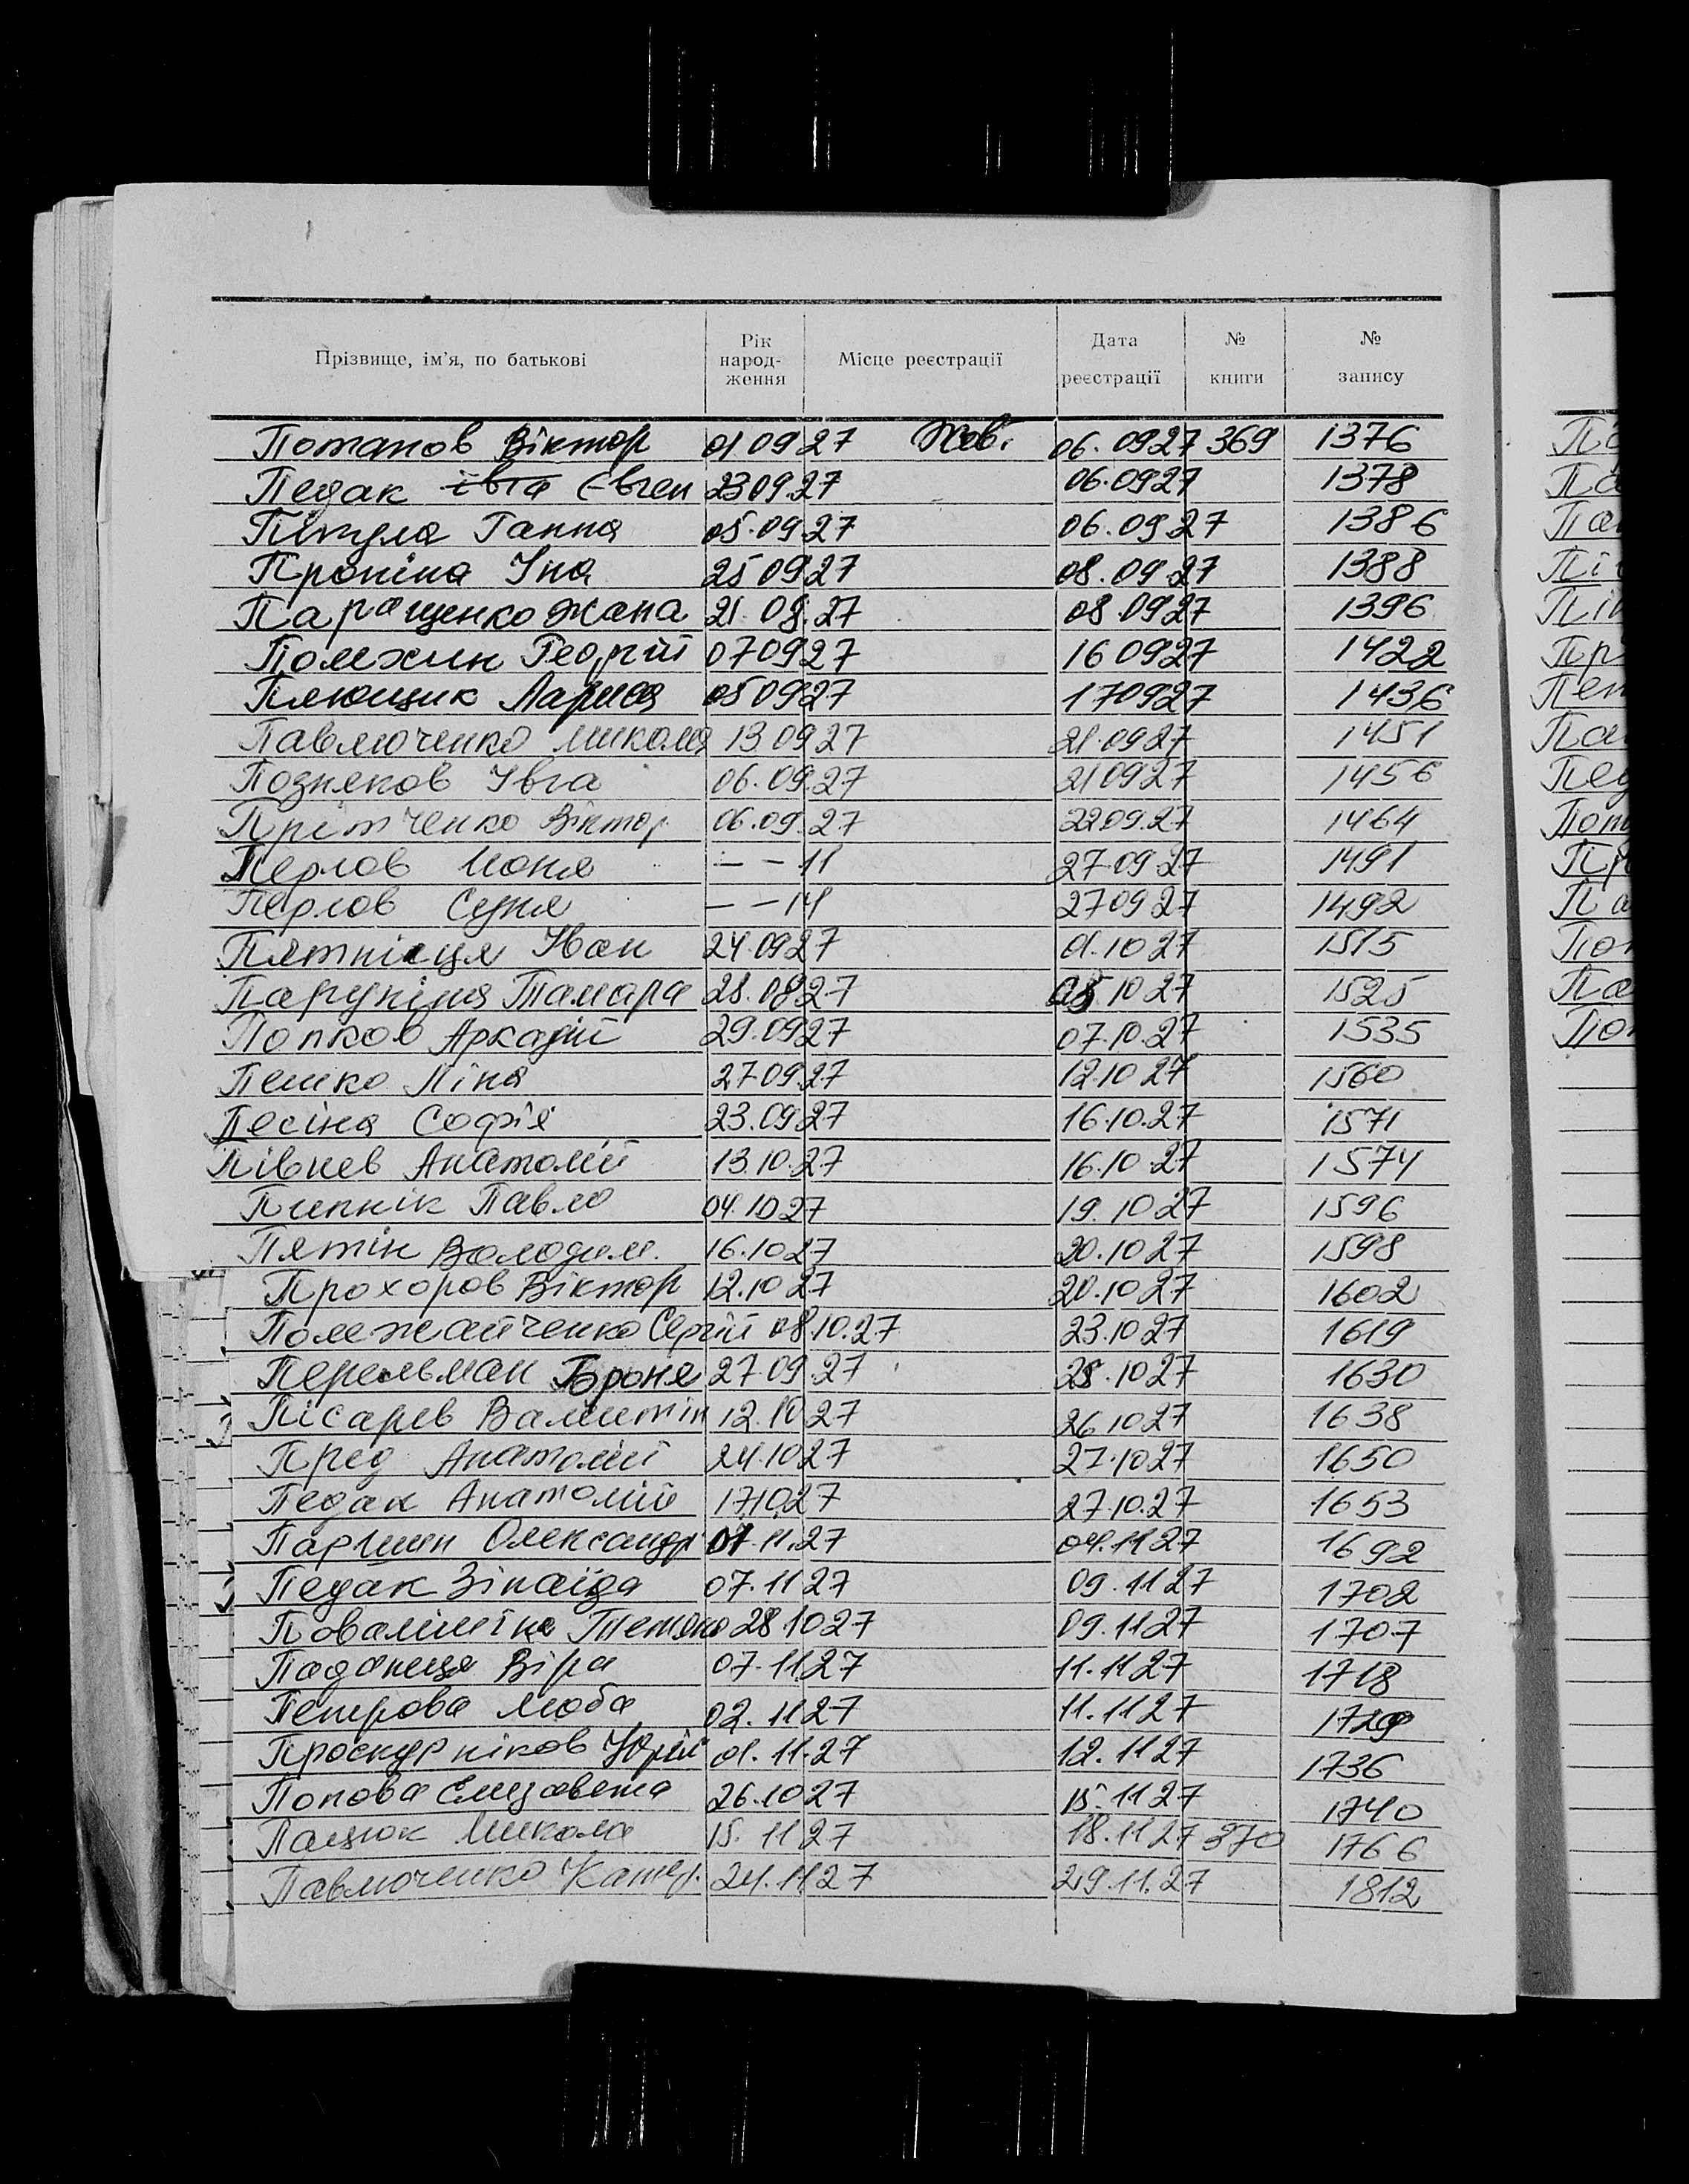 Прізвище, ім'я, по батькові Рік народ-ження Місце реєстрації Дата реєстрації № книги № запису
Потапов Віктор 01 09 27 Жов. 06.09 27 369 1376
Педак Івга Євген 23 09.27 06.09 27 1378
Пікула Ганна 05.09.27 06.09.27 1386
Проніна Іна 25 09 27 08.09.27 1388
Паращенко Жана 21.08.27 08 09 27 1396
Полежин Георгій 07 09 27 16 09 27 1422
Плющик Лариса 05 09 27 17 09 27 1436
Павлюченко Микола 13 09 27 21.09 27 1451
Позняков Івга 06.09.27 21 09 27 1456
Прітченко Віктор 06.09.27 22 09.27 1464
Перлов Моня — — 11 27.09 27 1491
Перлов Суня — — 14 27 09 27 1492
Пятніця Іван 24.09 27 01.10 27 1515
Паруніна Тамара 28.08 27 05 10 27 1525
Попков Аркадій 29.09 27 07.10.27 1535
Пешко Ліна 27 09.27 12.10 27 1560
Песіна Софія 23.09 27 16.10.27 1571
Півнев Анатолій 13.10.27 16.10 27 1574
Пипнік Павло 04.10 27 19.10 27 1596
Пятін Володим. 16.10 27 20.10 27 1598
Прохоров Віктор 12.10 27 20.10 27 1602
Полежайченко Сергій 08.10.27 23.10 27 1619
Перельман Броня 27 09.27 28.10 27 1630
Пісарев Валентін 12.10 27 26 10 27 1638
Пред Анатолій 24.10 27 27.10 27 1650
Педак Анатолій 17.10 27 27.10.27 1653
Паршин Олександр 01.11.27 04.11 27 1692
Педак Зінаїда 07.11 27 09.11 27 1702
Повалішіна Тетяна 28 10 27 09.11 27 1707
Паданеця Віра 07.11.27 11.11 27 1718
Петрова Люба 02.11 27 11.11 27 1719
Проскурніков Юрій 01.11.27 12.11 27 1736
Попова Єлизавета 26.10 27 15.11 27 1740
Пацюк Микола 15.11 27 18.11 27 370 1766
Павлюченко Катер. 24.11 27 29.11.27 1812